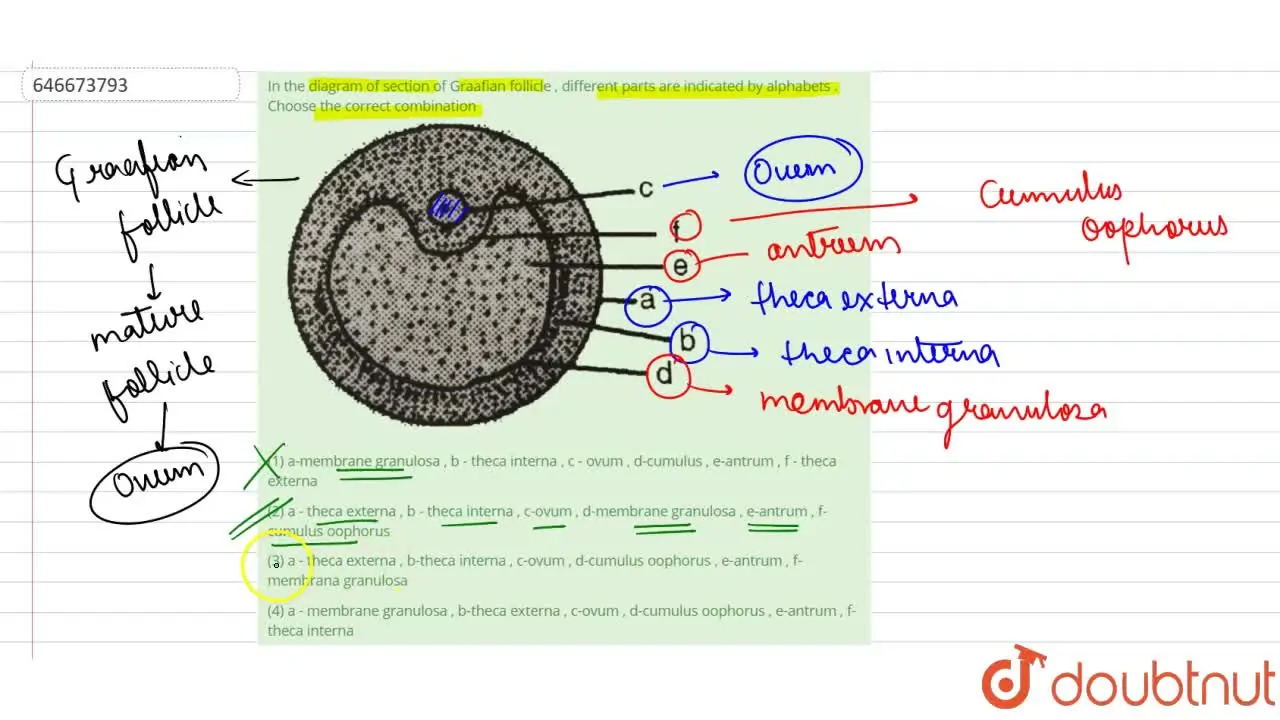 646673793
In the diagram of section of Graafian follicle , different parts are indicated by alphabets .
Choose the correct combination
Graafian
follicle
mature
follicle
Ovum
c
Ovum
f
Cumulus
oophorus
e
antrum
a
theca externa
b
theca interna
d
membrane granulosa
(1) a-membrane granulosa , b - theca interna , c - ovum , d-cumulus , e-antrum , f - theca
externa
(2) a - theca externa , b - theca interna , c-ovum , d-membrane granulosa , e-antrum , f-
cumulus oophorus
(3) a - theca externa , b-theca interna , c-ovum , d-cumulus oophorus , e-antrum , f-
membrana granulosa
(4) a - membrane granulosa , b-theca externa , c-ovum , d-cumulus oophorus , e-antrum , f-
theca interna
doubtnut